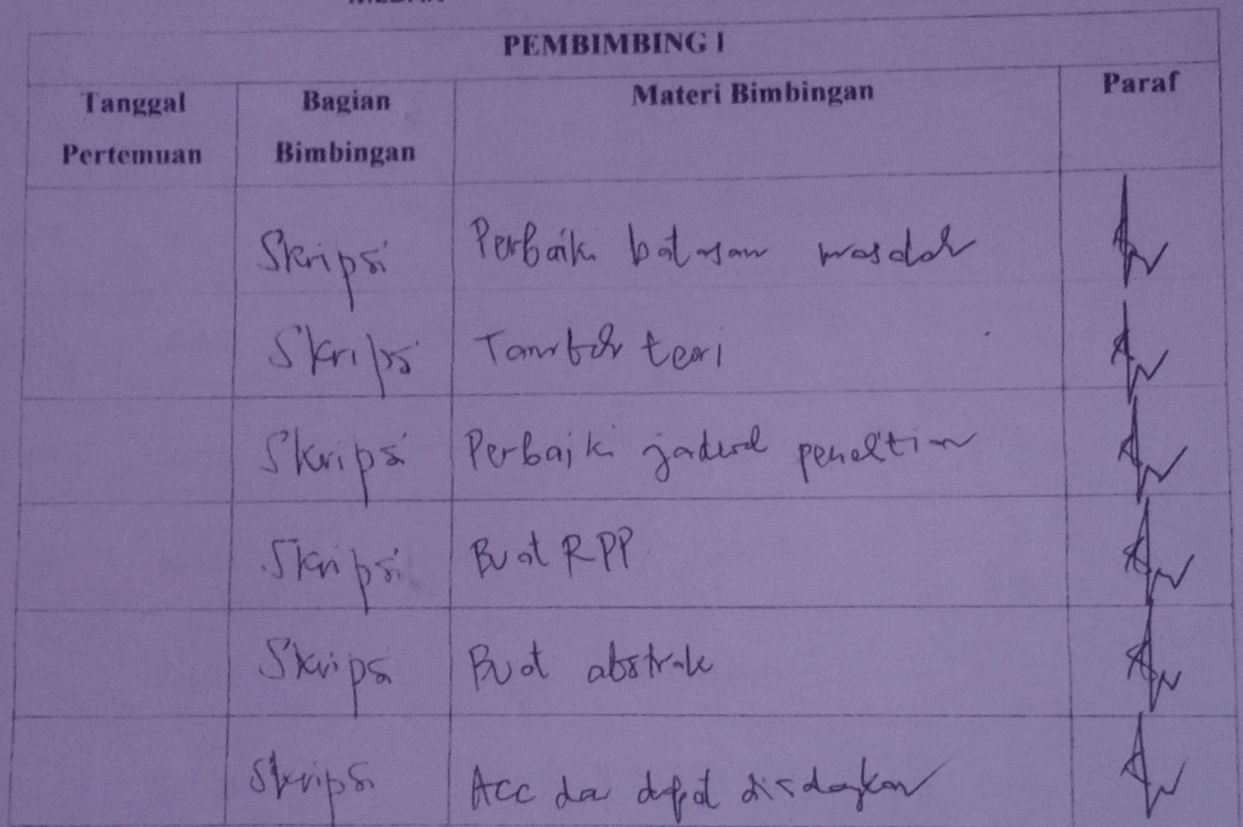 PEMBIMBING I
Tanggal Pertemuan Bagian Bimbingan Materi Bimbingan Paraf
Skripsi Perbaiki batasan masalah
Skripsi Tambah teori
Skripsi Perbaiki jadwal penelitian
Skripsi Buat RPP
Skripsi Buat abstrak
Skripsi Acc dan dapat disidangkan